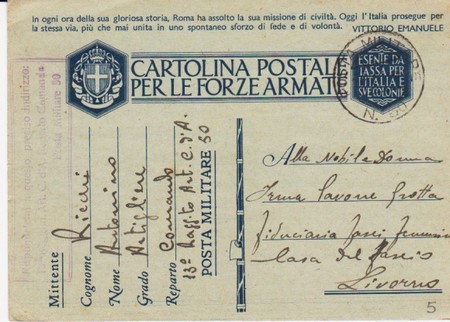 In ogni ora della sua gloriosa storia, Roma ha assolto la sua missione di civiltà. Oggi l'Italia prosegue per
la stessa via, più che mai unita in uno spontaneo sforzo di fede e di volontà. VITTORIO EMANUELE
CARTOLINA POSTALE
PER LE FORZE ARMAT
POSTA MILITARE
N. 50
ESENTE DA
TASSA PER
L'ITALIA E
SUE COLONIE
Posta Militare 50
Mittente
Cognome Ricci
Nome Antonino
Grado Artigliere
Reparto Comando
13º Ragg.to Art. C. d'A.
POSTA MILITARE 50
Alla Nobile Donna
Irma Pavone Grotta
Fiduciaria Fasci Femminili
Casa del Fascio
Livorno
5